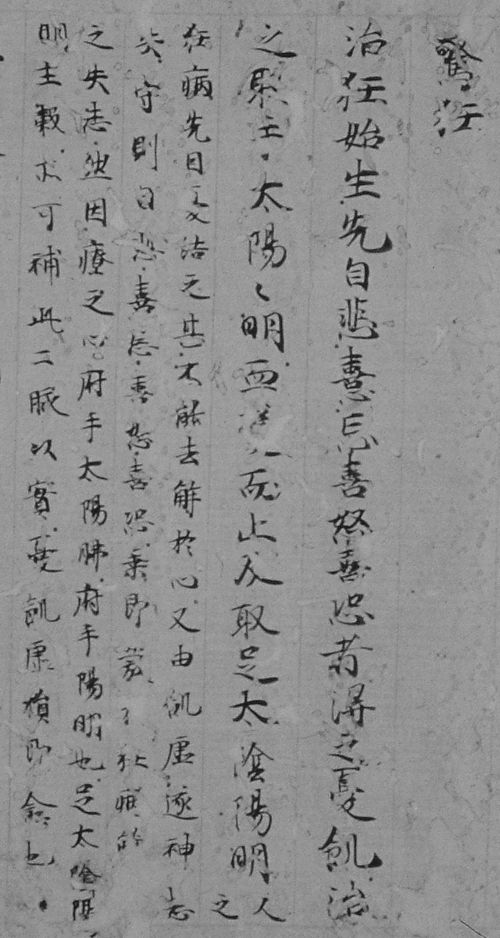 驚狂
治狂始生先自悲憙忘喜怒善恐者得之憂飢治
之取手太陽〻明血變而止及取足太陰陽明人
之
狂病先自憂結之甚不能去解於心又由飢虛遂神志
失守則自悲喜忘喜怒喜恐乘即發於狂癡
之失志也因療之心府手太陽肺府手陽明也足太陰陽
明主穀亦可補此二脈以實憂飢虛損即愈也